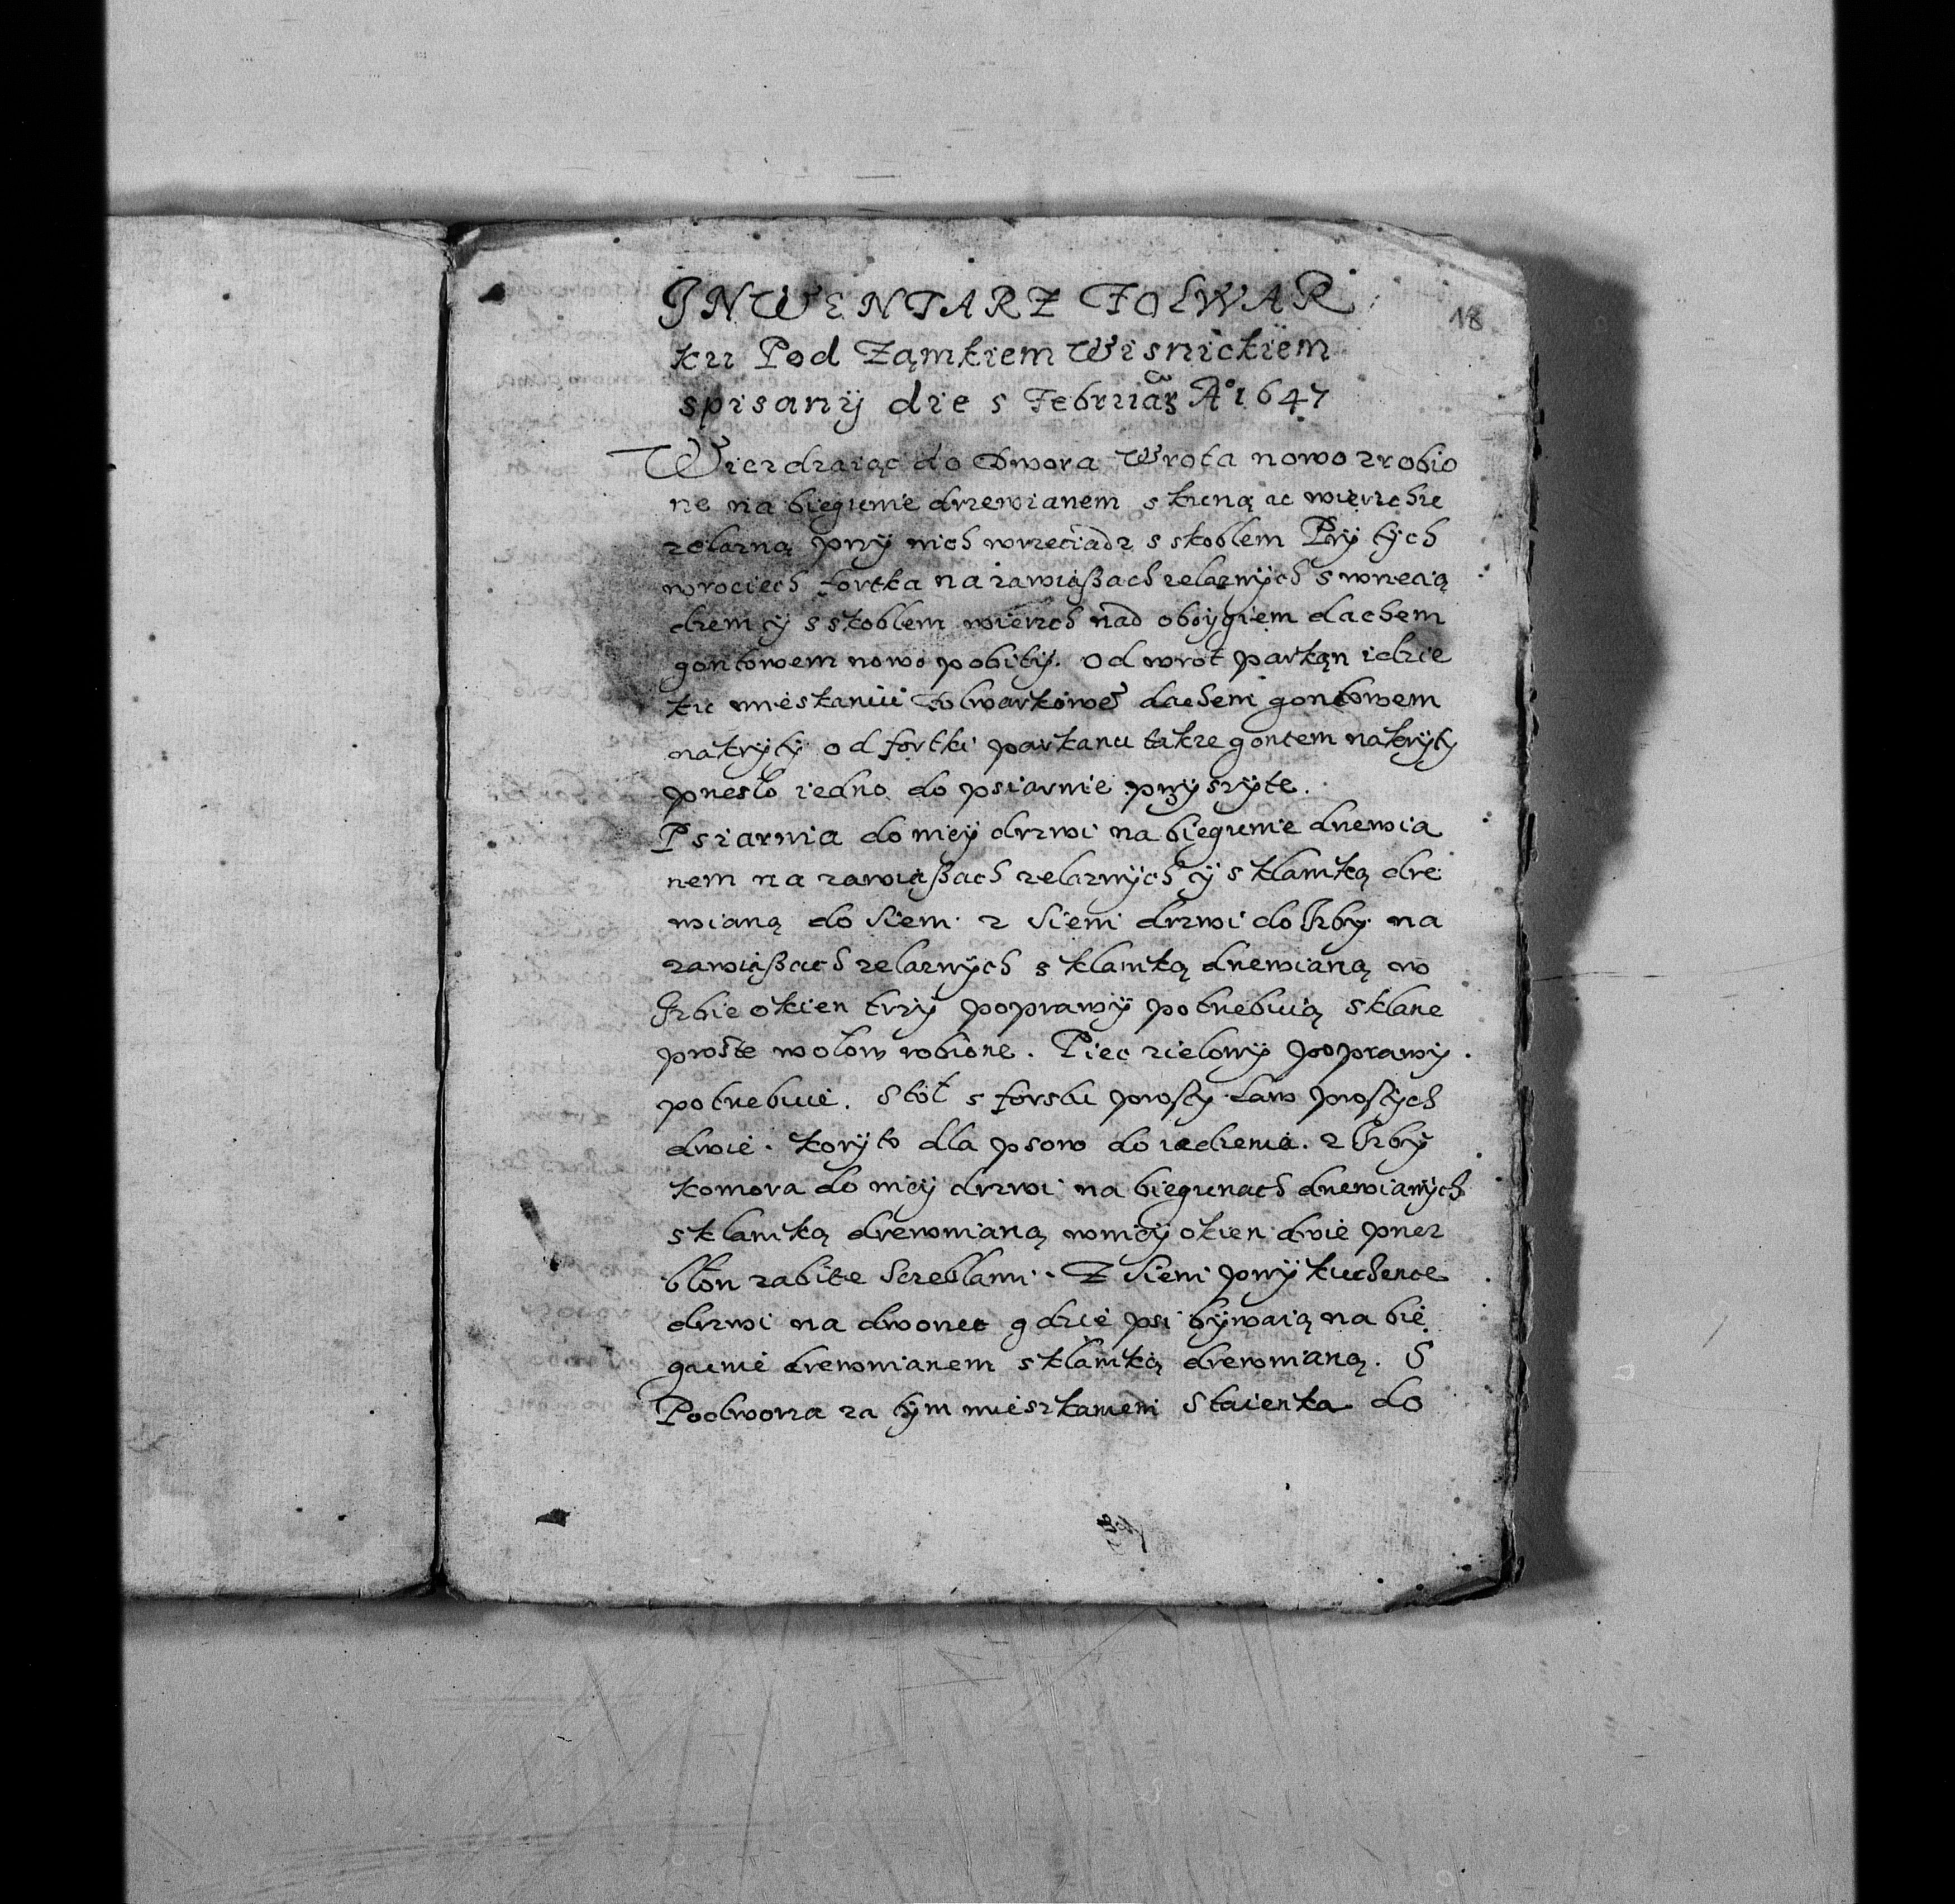 INWENTARZ FOLWAR
18
ku Pod Ząmkiem Wisnickiem
spisany die 5 Februar A° 1647
Wiezdzaiąc do Dwora Wrota nowo zrobio
ne na biegunie drzewianem s kuną u wierzchu
zelazną przy nich wrzeciadz s skoblem Przy tych
wrociech fortka na zawiaßach zelaznych s wrzecią
dzem y s skoblem wierzch nad oboygiem dachem
gontowem nowo pobity. od wrot parkąn idzie
ku mieskaniu Folwarkowe dachem gontowem
nakryty od fortki parkanu takze gontem nakryty
przesło iedno do psiarnie przyszyte.
Psiarnia do niey drzwi na biegunie drzewia
nem na zawiaßach zelaznych y s klamką dre
wianą do Sieni z Sieni drzwi do Izby na
zawiaßach zelaznych s klamką drzewianą w
Izbie okien trzy poprawy potrzebuią sklane
proste w ołow robione. Piec zielony poprawy
potrzebuie. Stoł s forszlu prosty Ław prostych
dwie. koryto dla psow do iedzenia. z Izby
komora do niey drzwi na biegunach drzewianych
s klamką drewnianą w niey okien dwie przez
błon zabite Szczeblami. Z Sieni przy kuchence
drzwi na dworzec gdzie psi bywaią na bie
gunie drewnianem s klamką drewnianą. S
Podworza za tym mieszkaniem Staienka do